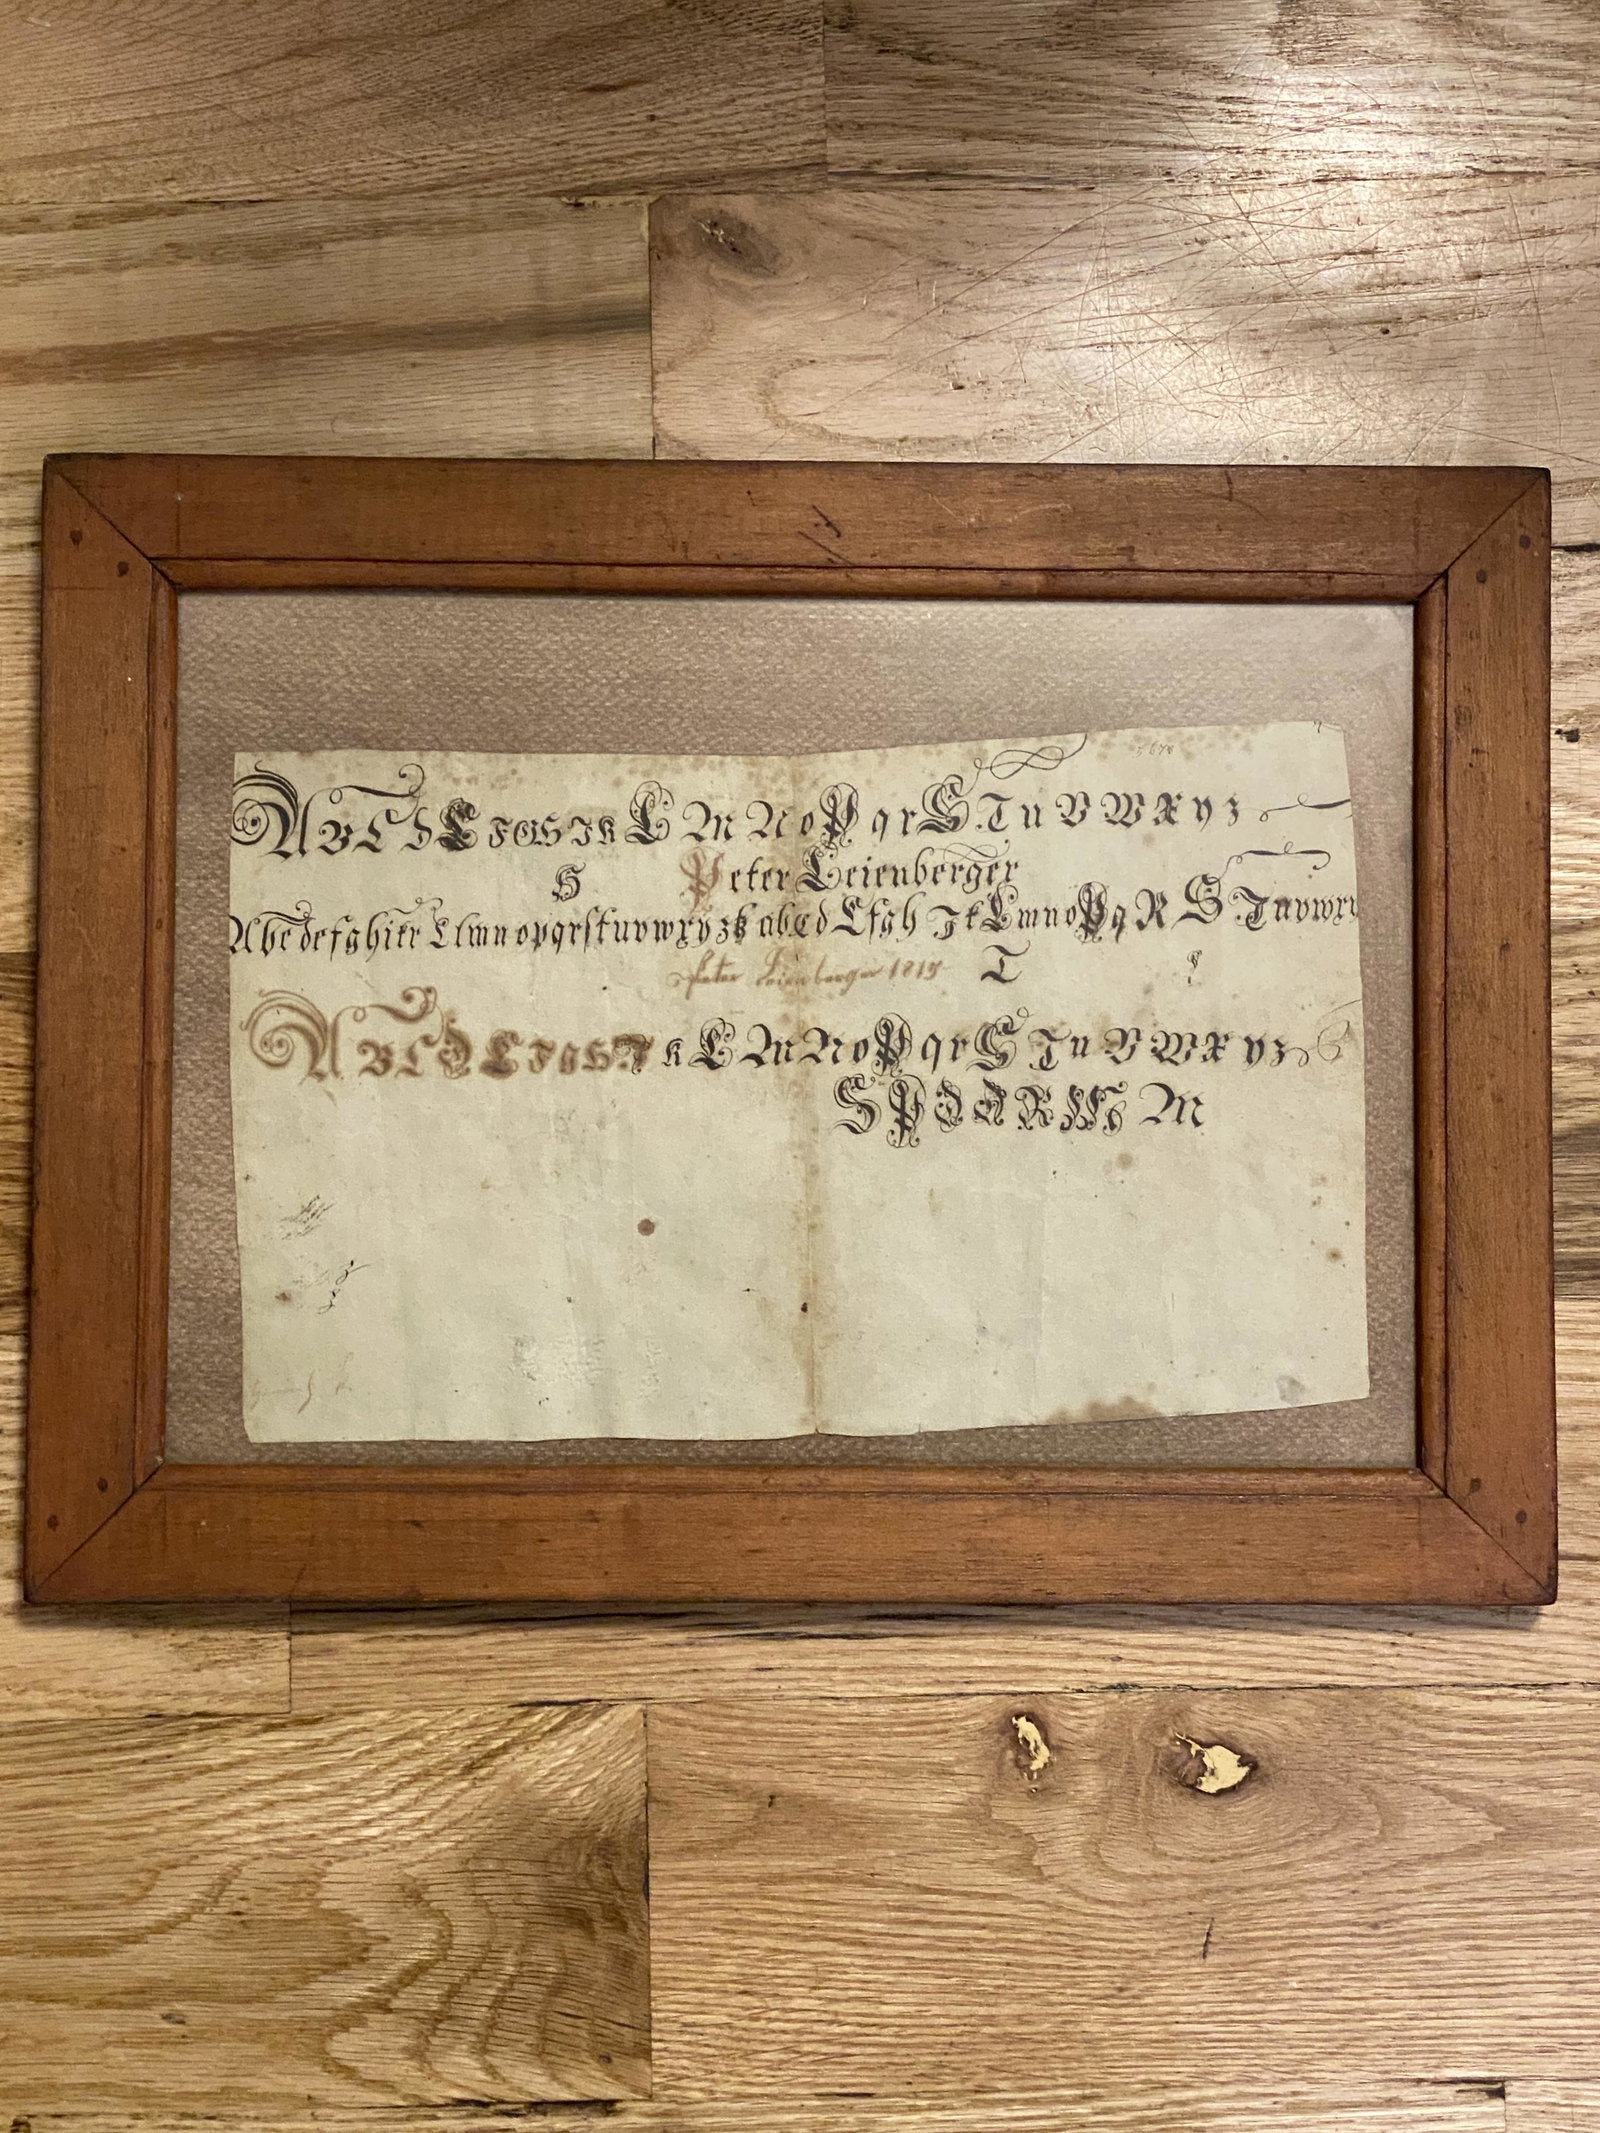 A B C D E F G H I K L M N O P q r S T u V W X y z
H Peter Leienberger
Abcdefghikr Llmnopqrstuvwxyzk abcd Efgh Jk LmnoPq R S Tuvwxy
Peter Leienberger 1815 T
A B C D E F g H J k L M N o P q r S T u V W X y z
S P D A R M